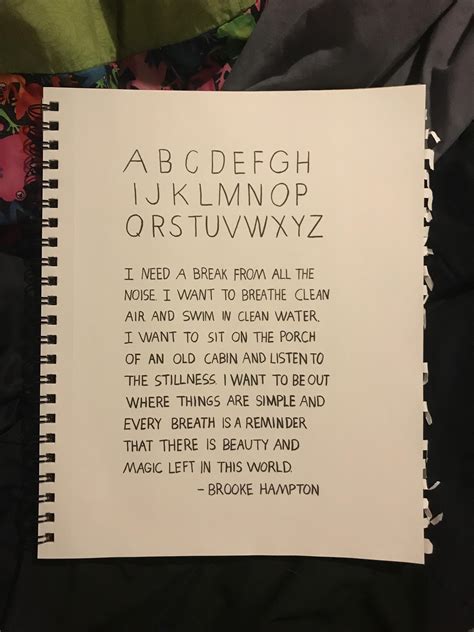 A B C D E F G H
I J K L M N O P
Q R S T U V W X Y Z
I NEED A BREAK FROM ALL THE
NOISE. I WANT TO BREATHE CLEAN
AIR AND SWIM IN CLEAN WATER.
I WANT TO SIT ON THE PORCH
OF AN OLD CABIN AND LISTEN TO
THE STILLNESS. I WANT TO BE OUT
WHERE THINGS ARE SIMPLE AND
EVERY BREATH IS A REMINDER
THAT THERE IS BEAUTY AND
MAGIC LEFT IN THIS WORLD.
– BROOKE HAMPTON